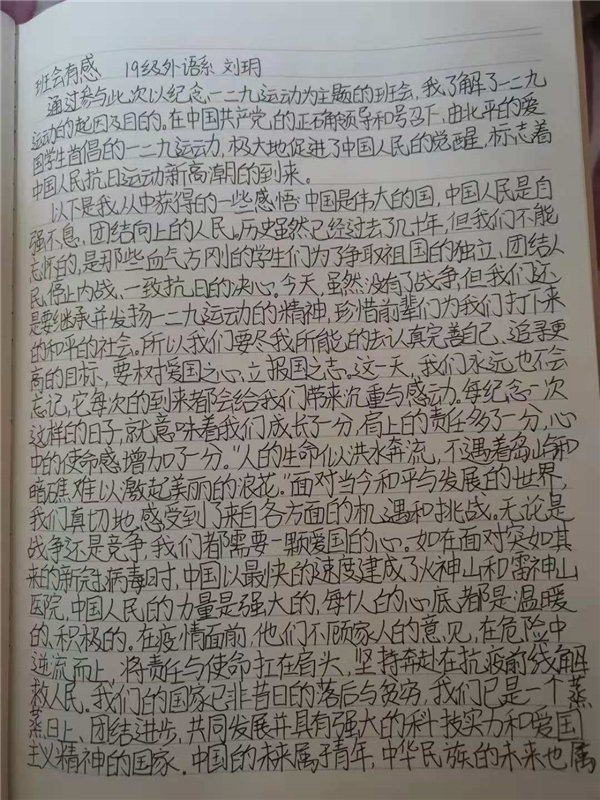 班会有感 19级外语系 刘玥
通过参与此次以纪念一二九运动为主题的班会,我了解了一二九
运动的起因及目的。在中国共产党的正确领导和号召下,由北平的爱
国学生首倡的一二九运动,极大地促进了中国人民的觉醒,标志着
中国人民抗日运动新高潮的到来。
以下是我从中获得的一些感悟:中国是伟大的国,中国人民是自
强不息、团结向上的人民。历史虽然已经过去了几十年,但我们不能
忘怀的,是那些血气方刚的学生们为了争取祖国的独立、团结人
民、停止内战、一致抗日的决心。今天,虽然没有了战争,但我们还
是要继承并发扬一二九运动的精神,珍惜前辈们为我们打下来
的和平的社会。所以我们要尽我所能的去认真完善自己、追寻更
高的目标,要树爱国之心,立报国之志。这一天,我们永远也不会
忘记,它每次的到来都会给我们带来沉重与感动。每纪念一次
这样的日子,就意味着我们成长了一分,肩上的责任多了一分,心
中的使命感增加了一分。"人的生命似洪水奔流,不遇着岛屿和
暗礁难以激起美丽的浪花。"面对当今和平与发展的世界,
我们真切地感受到了来自各方面的机遇和挑战。无论是
战争还是竞争,我们都需要一颗爱国的心。如在面对突如其
来的新冠病毒时,中国以最快的速度建成了火神山和雷神山
医院。中国人民的力量是强大的,每个人的心底都是温暖
的、积极的。在疫情面前,他们不顾家人的意见,在危险中
逆流而上,将责任与使命扛在肩头,坚持奔赴在抗疫前线解
救人民。我们的国家已非昔日的落后与贫穷,我们已是一个蒸
蒸日上、团结进步,共同发展并具有强大的科技实力和爱国
主义精神的国家。中国的未来属于青年,中华民族的未来也属